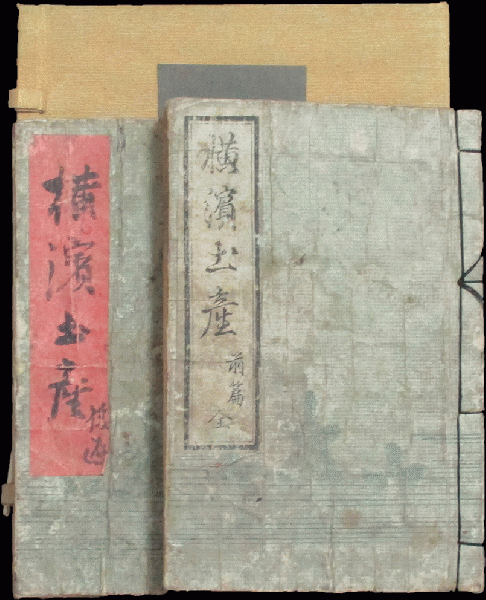 横濱土産
前篇 全
横濱土産